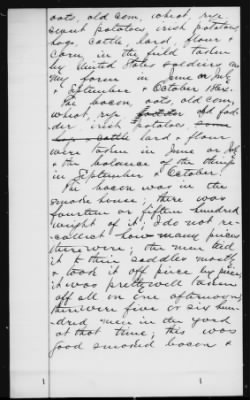 oats, old corn, wheat, rye
sweet potatoes, irish potatoes,
hogs, cattle, lard, flour &
corn, in the field taken
by United States soldiers on
my farm in June or July
& September & October 1862.
The bacon, oats, old corn,
wheat, rye fodder old fod-
der irish potatoes
cattle lard & flour
were taken in June or July
& the balance of the things
in September & October.
The bacon was in the
smoke house; there was
fourteen or fifteen hundred
weight of it; I do not re-
collect how many pieces
there were; the men tied
it to their saddles mostly
& took it off piece by piece;
it was pretty well taken
off all in one afternoon;
there were five or six hun-
dred men in the yard
at that time; this was
good smoked bacon &
1 1